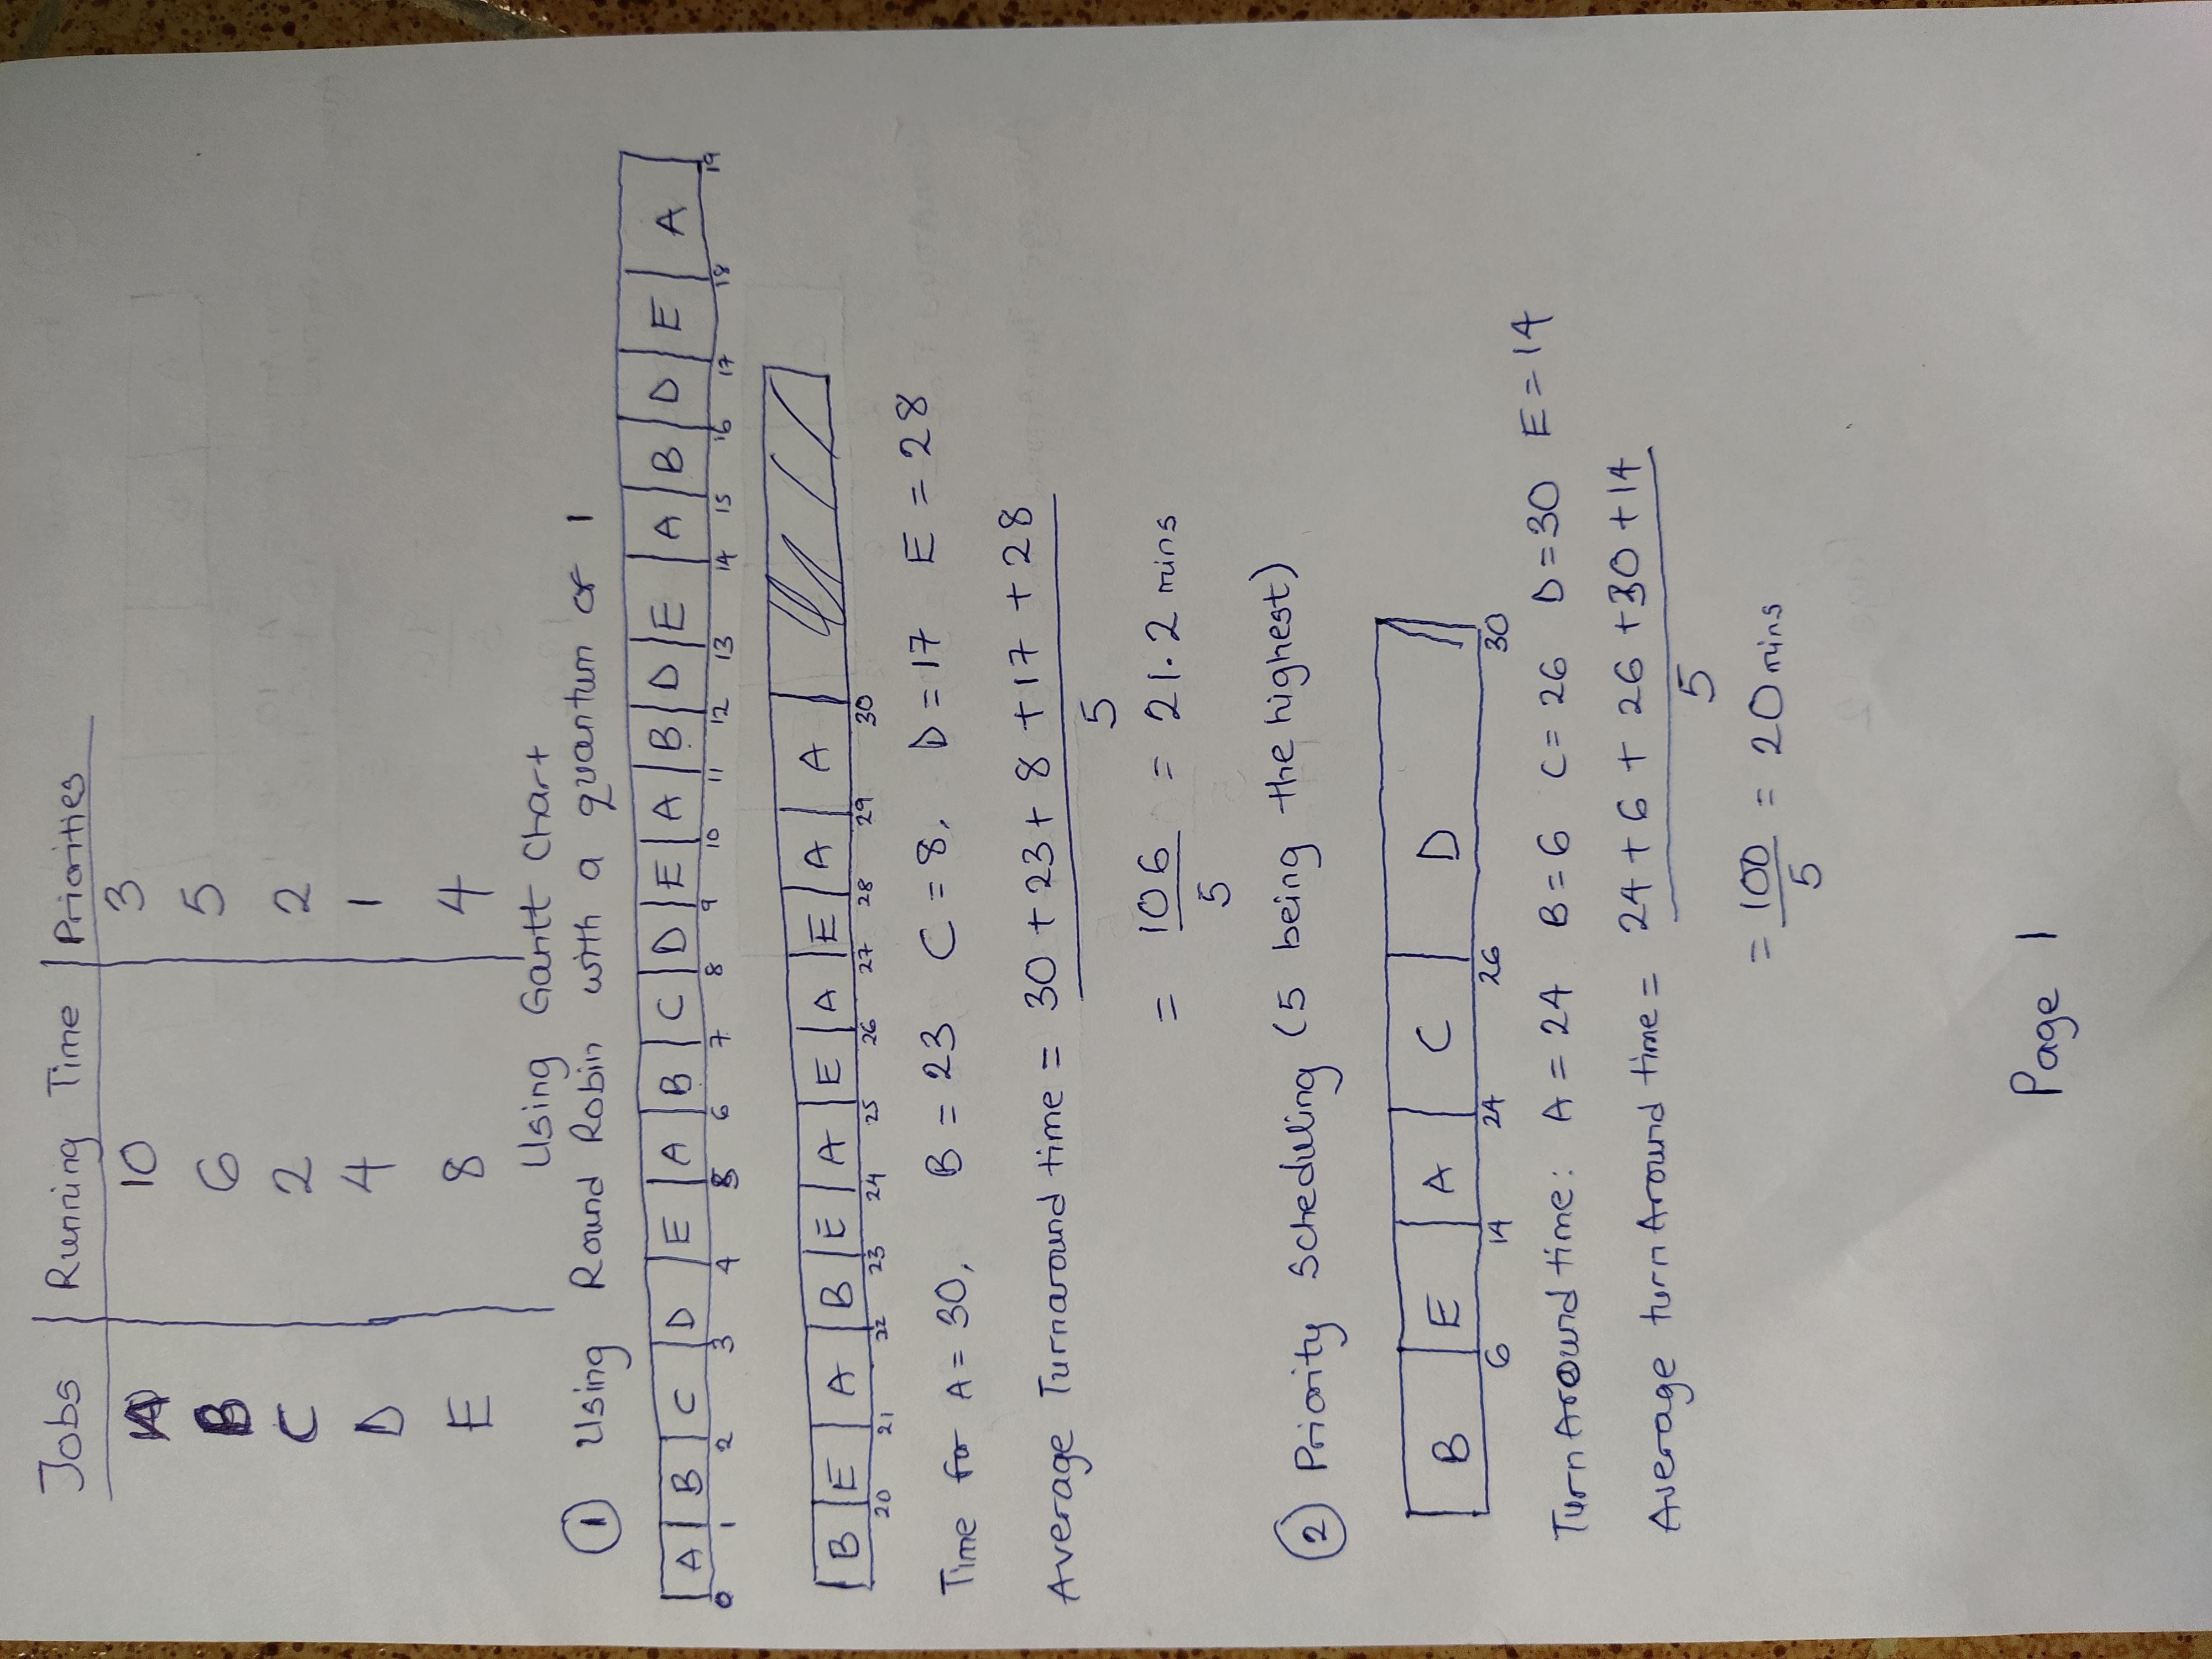 Jobs | Running Time | Priorities
A 10 3
B 6 5
C 2 2
D 4 1
E 8 4
Using Gantt Chart
① Using Round Robin with a quantum of 1
A B C D E A B C D E A B D E A B D E A
0 1 2 3 4 5 6 7 8 9 10 11 12 13 14 15 16 17 18 19
B E A B E A E A E A A
20 21 22 23 24 25 26 27 28 29 30
Time for A = 30, B = 23 C = 8, D = 17 E = 28
Average Turnaround time = 30 + 23 + 8 + 17 + 28
5
= 106 = 21.2 mins
5
② Priority Scheduling (5 being the highest)
B E A C D
6 14 24 26 30
TurnAround time: A = 24 B = 6 C = 26 D = 30 E = 14
Average turnAround time = 24 + 6 + 26 + 30 + 14
5
= 100 = 20 mins
5
Page 1